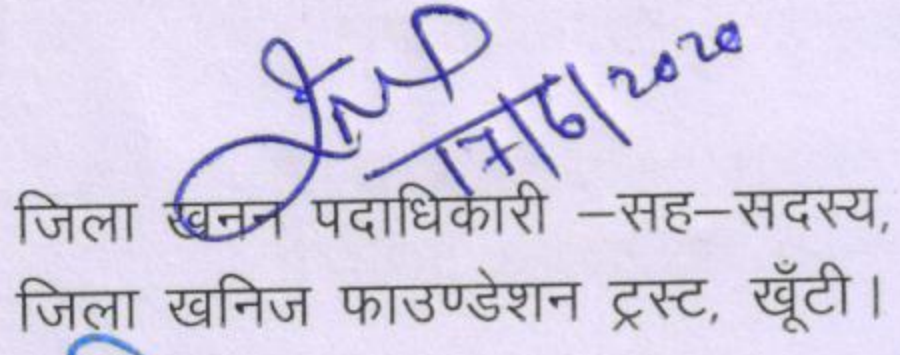 17/6/2020
जिला खनन पदाधिकारी –सह–सदस्य,
जिला खनिज फाउण्डेशन ट्रस्ट, खूँटी।